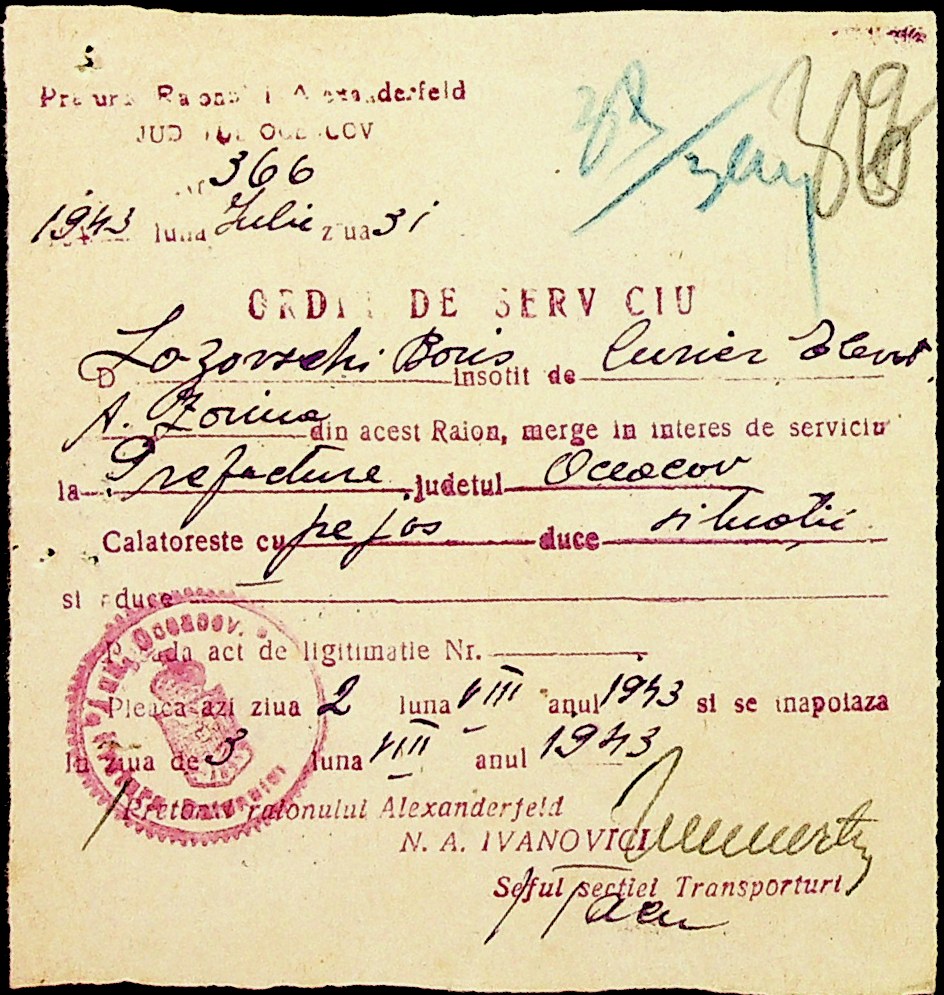 Pretura Raionului Alexanderfeld
JUDETUL OCEACOV
Nr 366
1943 luna Iulie ziua 31
ORDIN DE SERVICIU
D Lozovschi Boris insotit de Curier
A. Zorina din acest Raion, merge in interes de serviciu
la Prefacture judetul Oceacov
Calatoreste cu pe jos duce situatii
si aduce —
Poseda act de ligitimatie Nr.
Pleaca azi ziua 2 luna VIII anul 1943 si se inapoiaza
In ziua de 3 luna VIII anul 1943
Jud. Oceacov.
Pretorul raionului Alexanderfeld
N. A. IVANOVICI
Seful sectiei Transporturi